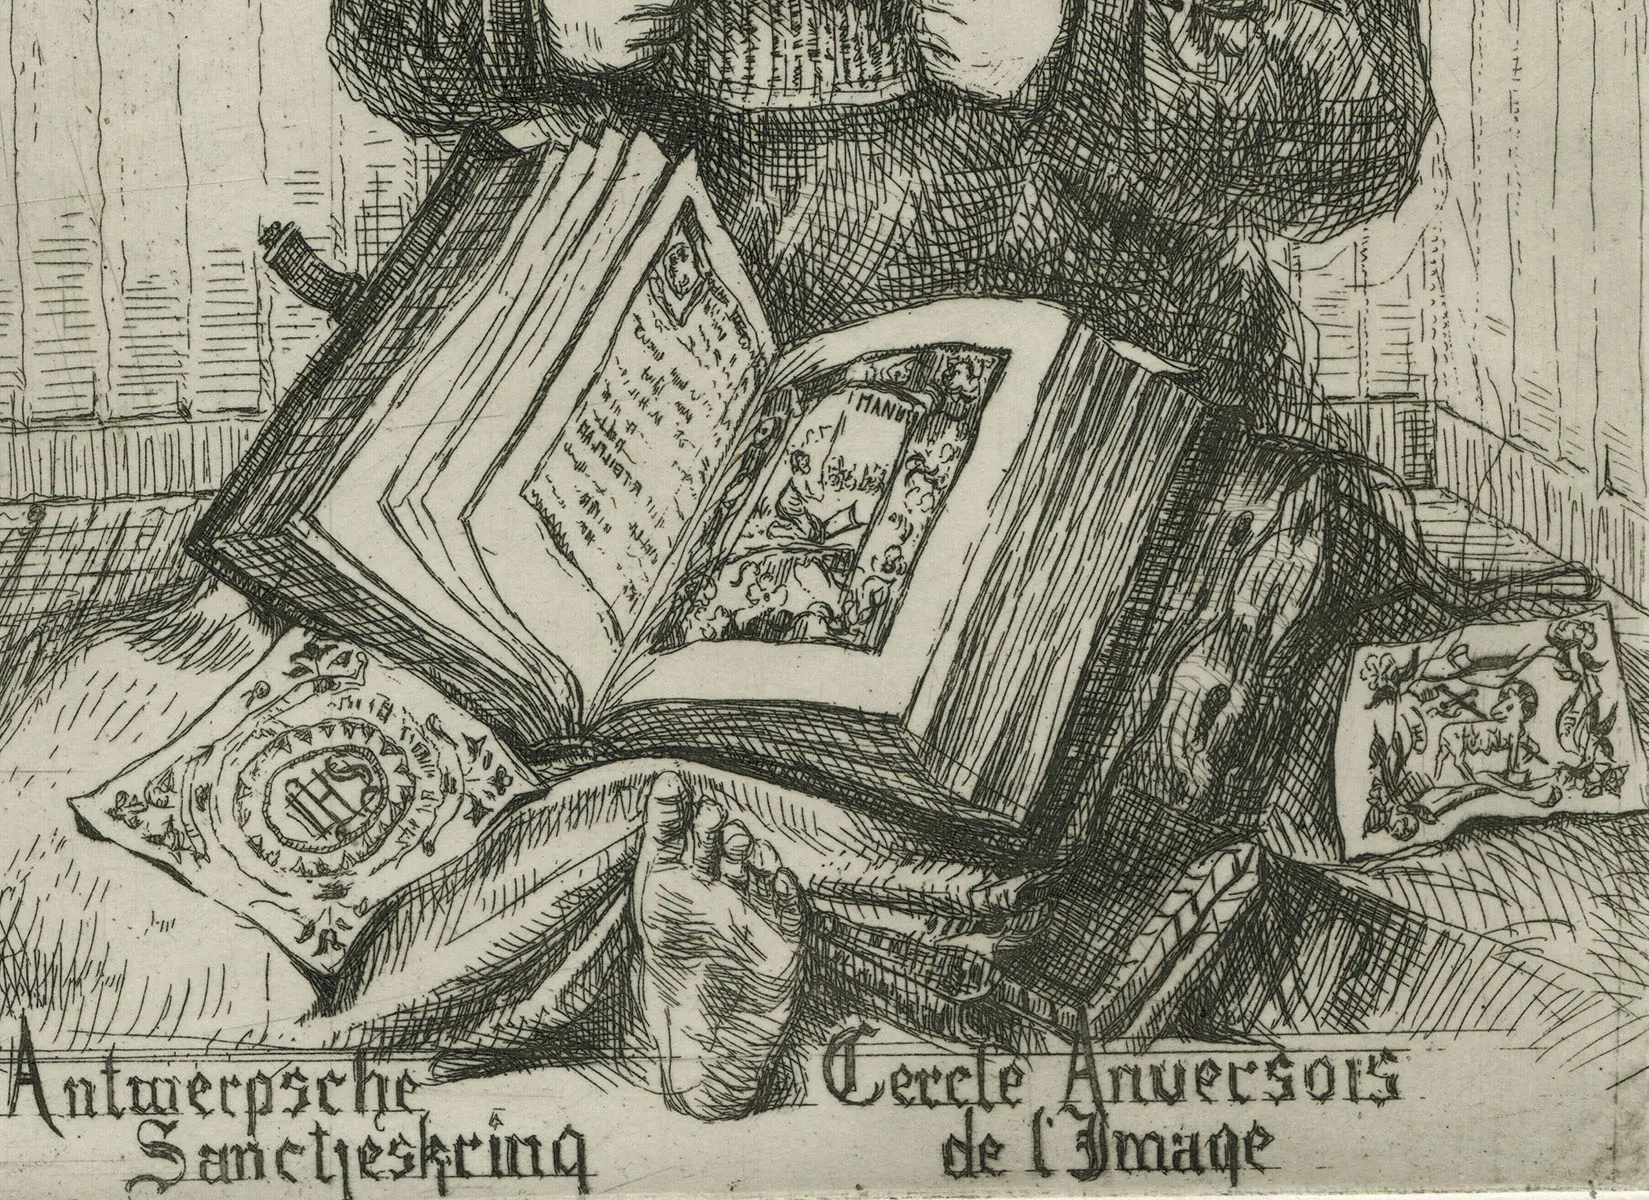 MANU
IHS
Antwerpsche
Sanctjeskring
Cercle Anversois
de l'Image